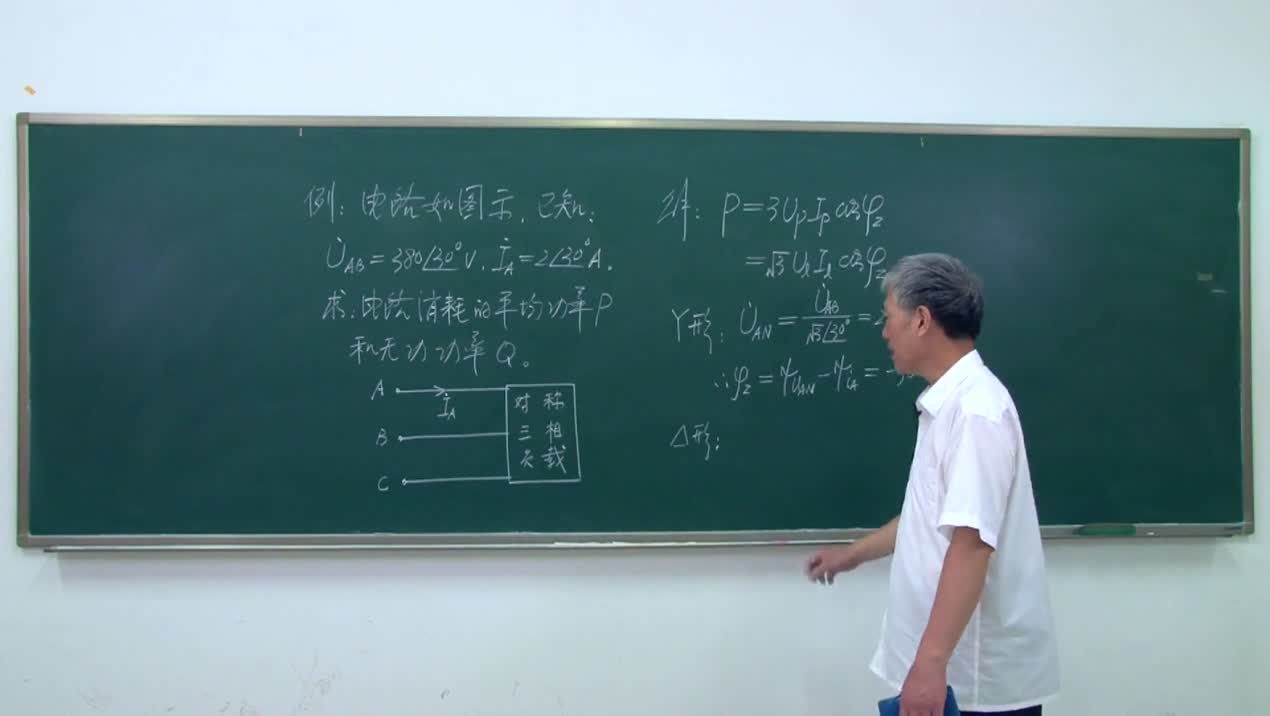 例：电路如图示，已知：
U̇AB=380∠30°V，İA=2∠30°A。
求：电路消耗的平均功率P
和无功功率Q。
A
İA
B
C
对称
三相
负载
解：P=3UpIpcosφz
=√3UlIlcosφz
Y形：U̇AN=U̇AB/√3∠30°=2
∴φz=ψuAN-ψiA=-3
Δ形：